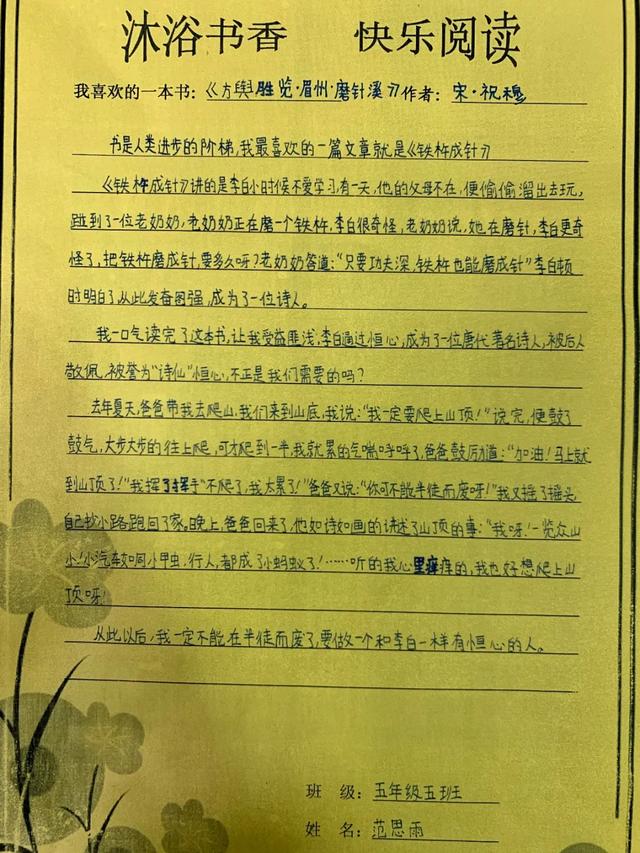 沐浴书香 快乐阅读
我喜欢的一本书：《方舆胜览·眉州·磨针溪》作者：宋·祝穆
书是人类进步的阶梯，我最喜欢的一篇文章就是《铁杵成针》
《铁杵成针》讲的是李白小时候不爱学习，有一天，他的父母不在，便偷偷溜出去玩，
碰到了一位老奶奶，老奶奶正在磨一个铁杵，李白很奇怪，老奶奶说，她在磨针，李白更奇
怪了，把铁杵磨成针，要多久呀？老奶奶答道：“只要功夫深，铁杵也能磨成针”李白顿
时明白了从此发奋图强，成为了一位诗人。
我一口气读完了这本书，让我受益匪浅，李白通过恒心，成为了一位唐代著名诗人，被后人
敬佩，被誉为“诗仙”恒心，不正是我们需要的吗？
去年夏天，爸爸带我去爬山，我们来到山底，我说：“我一定要爬上山顶！”说完，便鼓了
鼓气，大步大步的往上爬，可才爬到一半，我就累的气喘呼呼了，爸爸鼓励道：“加油！马上就
到山顶了！”我挥了挥手“不爬了，我太累了！”爸爸又说：“你可不能半徒而废呀！”我又摇了摇头
自己抄小路跑回了家。晚上，爸爸回来了，他如诗如画的讲述了山顶的事：“我呀！一览众山
小！小汽车如同小甲虫，行人，都成了小蚂蚁了！……听的我心里痒痒的，我也好想爬上山
顶呀！
从此以后，我一定不能在半徒而废了，要做一个和李白一样有恒心的人。
班 级：五年级五班
姓 名：范思雨